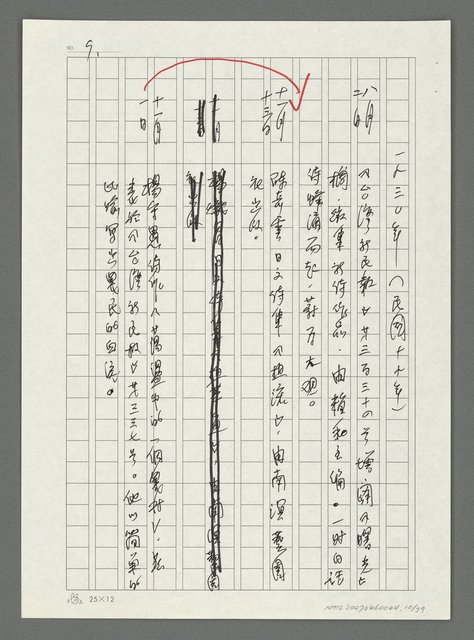 NO. 9.
一九三〇年(民國十九年)
八月
二日
《台灣新民報》第三百二十四號增闢《曙光》
欄,徵集新詩作品,由賴和主編。一時白話
詩蜂湧而起,蔚為大觀。
十一月
十三日
陳奇雲日文詩集《熱流》,由南溟藝園
社出版。
十一月
一日
楊守愚詩作《蕩盪中的一個農村》,發
表於《台灣新民報》第三三七號。他以簡單的
比喻寫出農民的哀流。
25×12
NMTL20070460064, 10/79